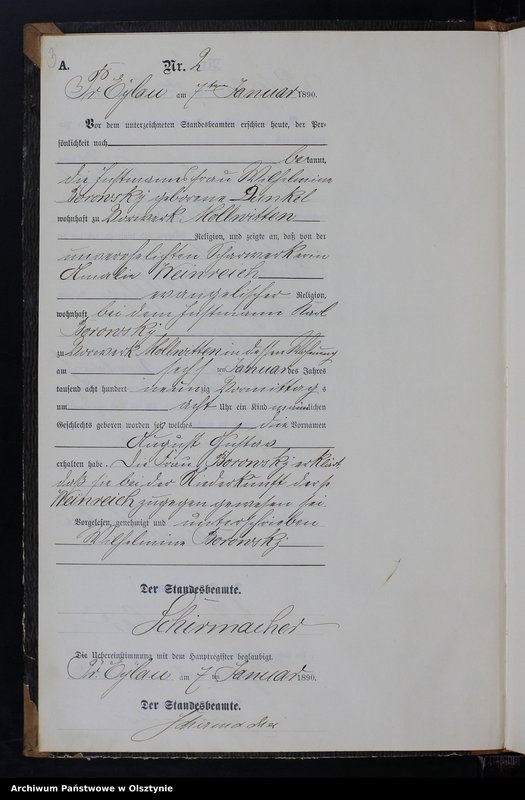 3
A.
Nr. 2
Pr. Eylau am 7ten Januar 1890.
Vor dem unterzeichneten Standesbeamten erschien heute, der Per-
sönlichkeit nach
bekannt,
die Instmannsfrau Wilhelmine
Borowsky geborene Dunkel
wohnhaft zu Vorwerk Mollwitten
Religion, und zeigte an, daß von der
unverehelichten Scharwerkerin
Amalie Weinreich
evangelischer Religion,
wohnhaft bei dem Instmann Karl
Borowsky
zu Vorwerk Mollwitten in dessen Wohnung
am sechsten Januar des Jahres
tausend acht hundert neunzig Vormittags
um acht Uhr ein Kind männlichen
Geschlechts geboren worden sei, welches die Vornamen
August Gustav
erhalten habe. Die Frau Borowsky erklärt,
daß sie bei der Niederkunft der p.
Weinreich zugegen gewesen sei.
Vorgelesen, genehmigt und unterschrieben
Wilhelmine Borowsky
Der Standesbeamte.
Schirmacher
Die Uebereinstimmung mit dem Hauptregister beglaubigt.
Pr. Eylau am 7ten Januar 1890.
Der Standesbeamte.
Schirmacher
Archiwum Państwowe w Olsztynie